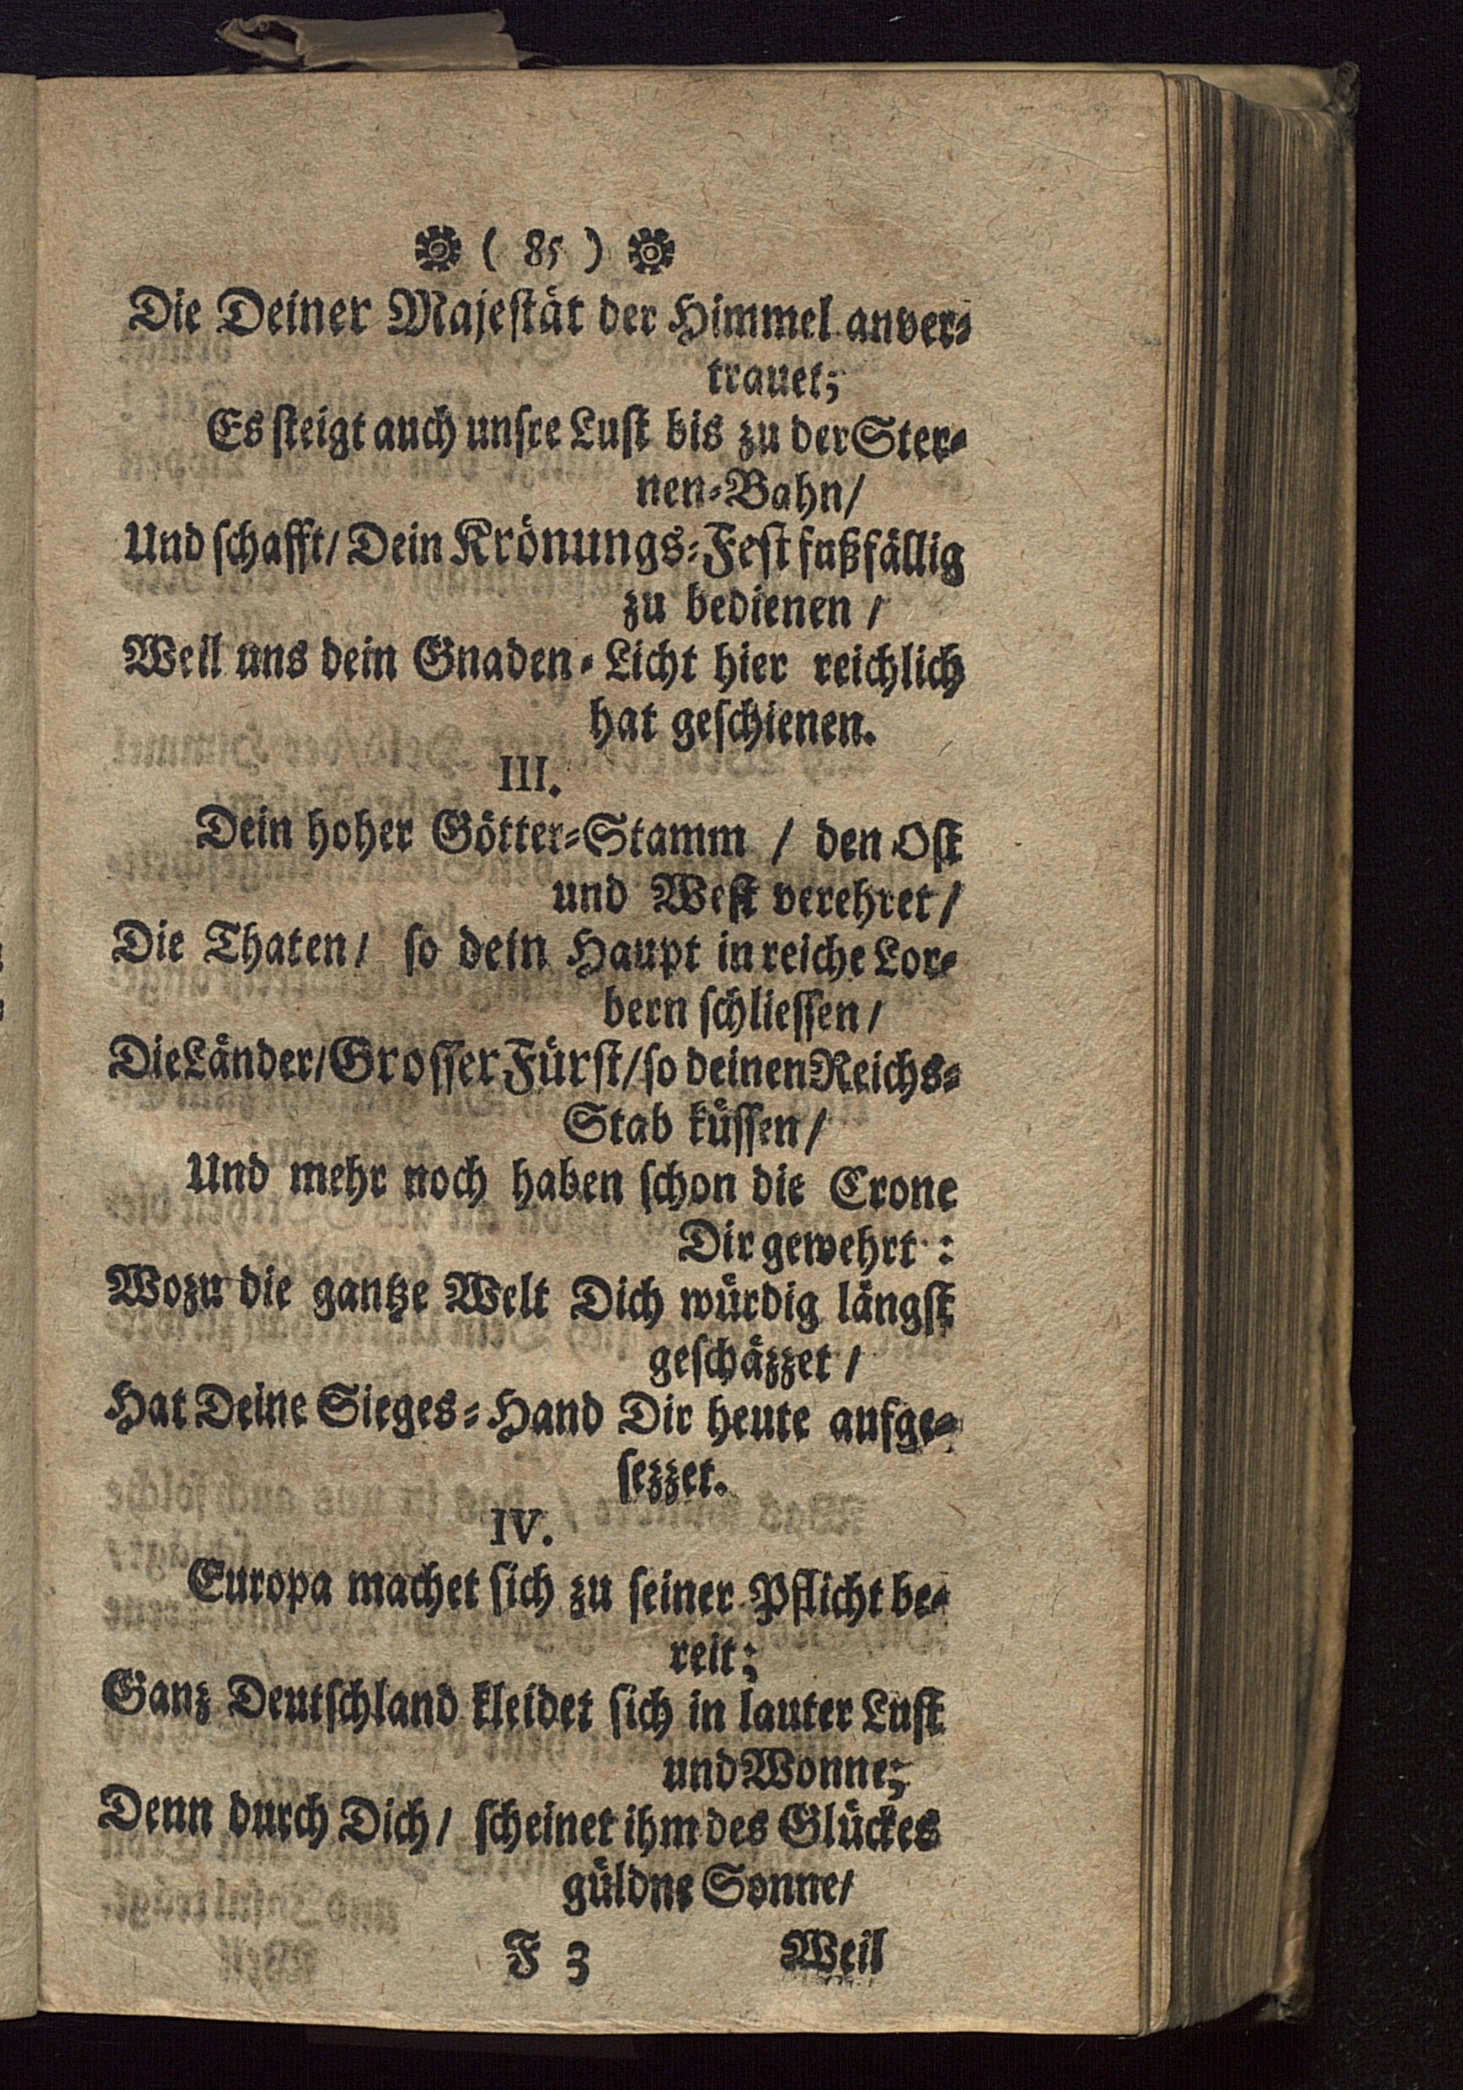 ( 85 )
Die Deiner Majestät der Himmel anver-
trauet;
Es steigt auch unsre Lust bis zu der Ster-
nen-Bahn/
Und schafft/ Dein Krönungs-Fest fußfällig
zu bedienen /
Weil uns dein Gnaden-Licht hier reichlich
hat geschienen.
III.
Dein hoher Götter-Stamm / den Ost
und West verehret /
Die Thaten/ so dein Haupt in reiche Lor-
bern schliessen /
Die Länder/ Grosser Fürst/ so deinen Reichs-
Stab küssen /
Und mehr noch haben schon die Crone
Dir gewehrt :
Wozu die gantze Welt Dich würdig längst
geschäzzet /
Hat Deine Sieges-Hand Dir heute aufge-
sezzet.
IV.
Europa machet sich zu seiner Pflicht be-
reit;
Ganz Deutschland kleidet sich in lauter Lust
und Wonne;
Denn durch Dich/ scheinet ihm des Glückes
güldne Sonne/
F 3 Weil